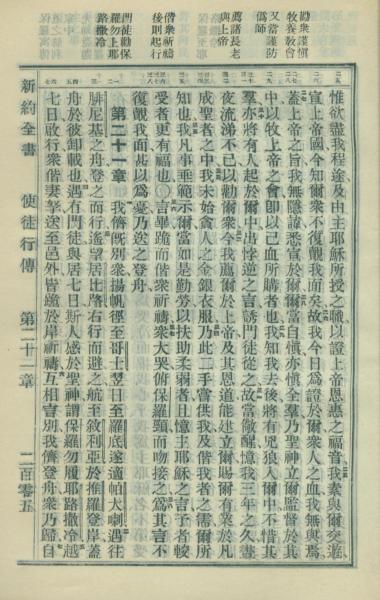 勸衆謹愼
牧養教會
又當謹防
僞師
薦諸長老
與上帝
偕衆祈禱
後則起行
門徒勸保
羅勿上耶
路撒冷
惟欲盡我程途及由主耶穌所授之職以證上帝恩惠之福音我素與爾交遊
宣上帝國今知爾衆不復覿我面矣故我今日爲證於爾衆人之血我無與焉
蓋上帝之旨我無隱諱悉宣於爾爾當自愼亦愼全羣乃聖神立爾監督於其
中以牧上帝之會卽以己血所購者也我知我去後將有兇狼入爾中不惜其
羣亦將有人起於爾中出悖逆之言誘門徒從之故當儆醒憶我三年之久晝
夜流涕不已以勸爾衆今我薦爾於上帝及其恩道能建立爾賜爾有業於凡
成聖者之中我未始貪人之金銀衣服乃此二手嘗供我及偕我者之需爾所
知也我凡事垂範示爾當如是勤勞以扶助柔弱者且憶主耶穌之言予者較
受者更有福也○言畢跪而偕衆祈禱衆大哭俯保羅頸而吻接之爲其言不
復覿我面甚以爲憂乃送之登舟
第二十一章 我儕既別衆揚帆徑至哥士翌日至羅底遂適帕大喇遇往
腓尼基之舟登之而行遙望居比路右行而避之航至敘利亞於推羅登岸蓋
舟於彼卸載也遇有門徒與居七日斯人感於聖神謂保羅勿履耶路撒冷越
七日啟行衆偕妻孥送至邑外皆跪於岸祈禱互相言別我儕登舟衆乃歸自
新約全書 使徒行傳 第二十一章 二百零五